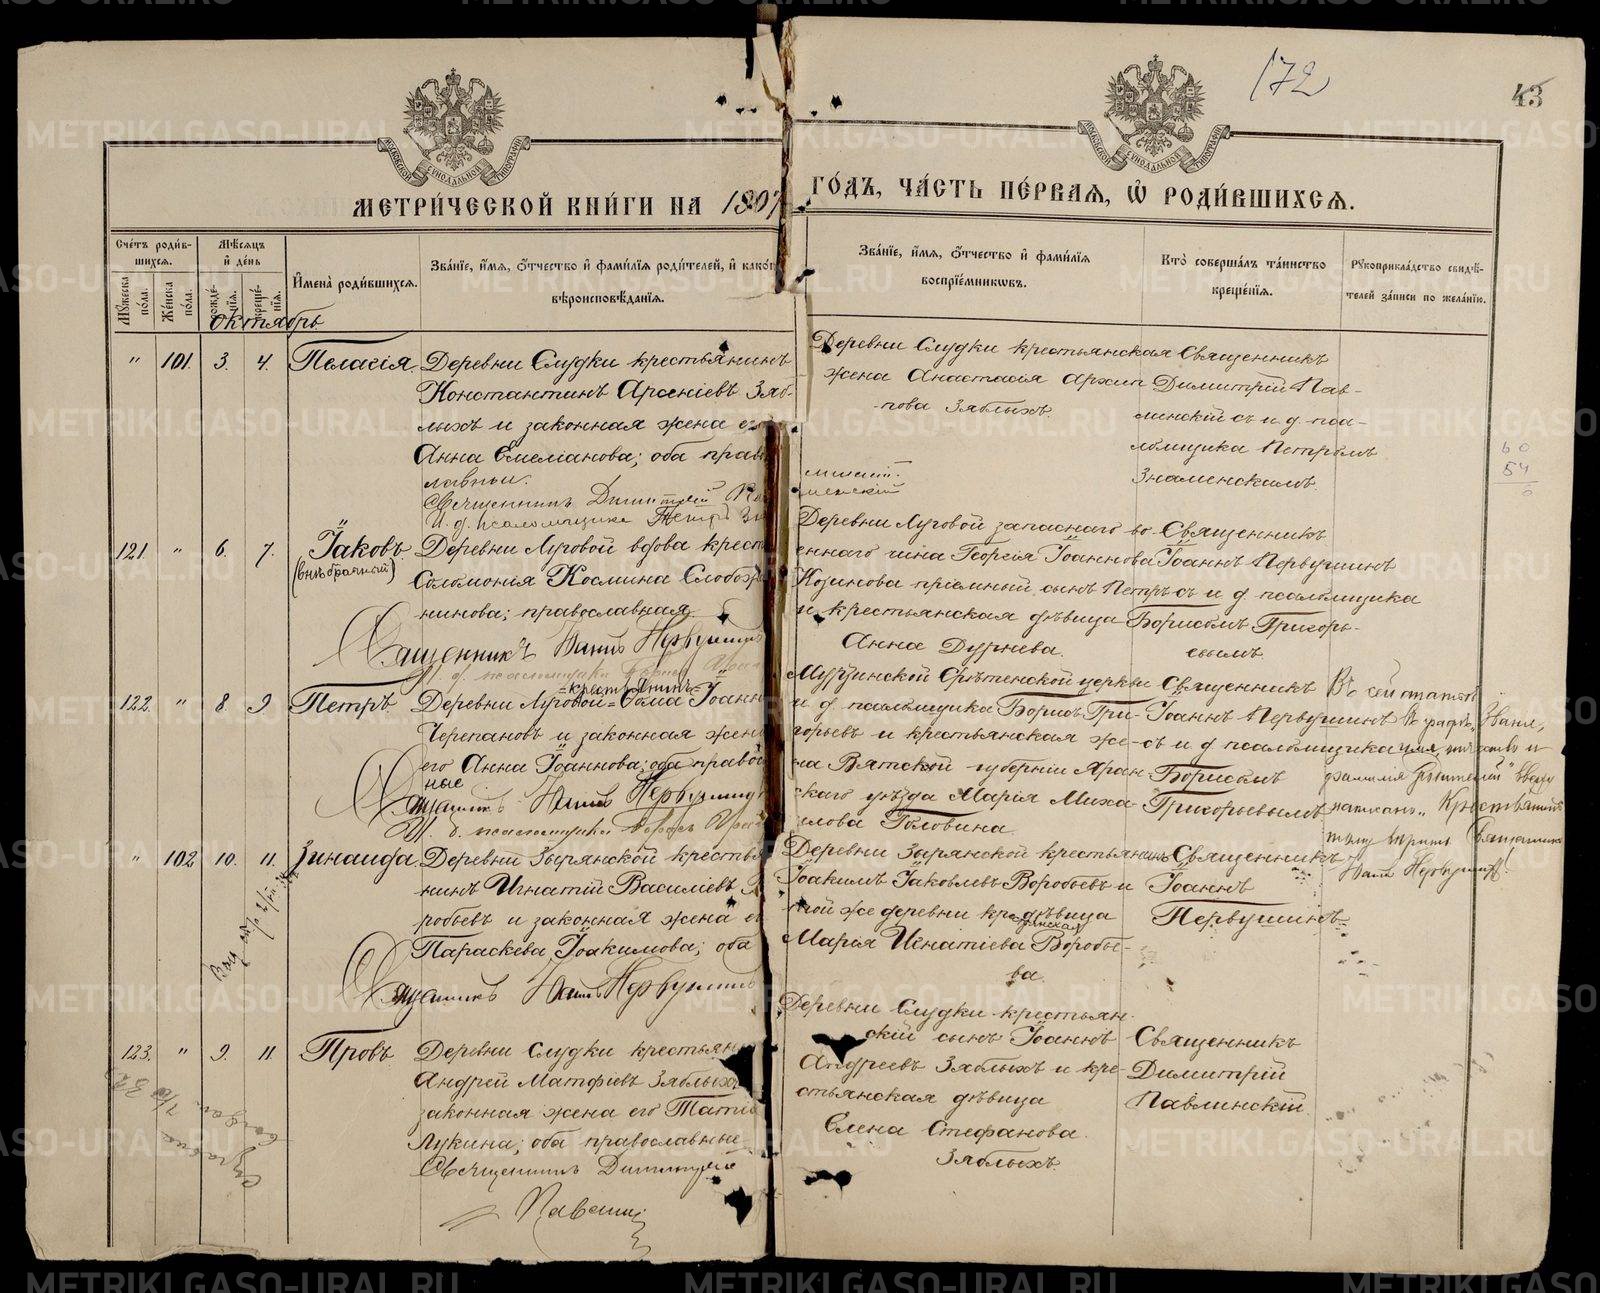 172
43
МЕТРИ́ЧЕСКОЙ КНИ́ГИ НА 1907
ГО́ДЪ, ЧА́СТЬ ПЕ́РВАЯ, Ѡ РОДИ́ВШИХСЯ.
Сче́тъ роди́в-
шихся.
Мꙋ́жеска по́ла.
Же́нска по́ла.
Мѣ́сяцъ
и де́нь
рожде́-
нїя.
креще́-
нїя.
И҆мена̀ роди́вшихся.
Зва́нїе, и҆́мя, ѻ҆́тчество и҆ фами́лїя роди́телей, и҆ како́г
вѣроисповѣ́данїя.
Зва́нїе, и҆́мя, ѻ҆́тчество и҆ фами́лїя
воспрїе́мникѡвъ.
Кто̀ соверша́лъ та́инство
креще́нїя.
Рꙋкоприкла́дство свидѣ́-
телей за́писи по жела́нїю.
Октябрь
" 101. 3. 4. Пелагія
Деревни Слудки крестьянинъ
Константинъ Арсеніевъ Зяб-
лыхъ и законная жена его
Анна Емеліанова; оба прав
лавныи.
Священникъ Димитрій
И. д. псаломщика Петръ Зн
Деревни Слудки крестьянская
жена Анастасія Архип
пова Зяблыхъ
Священникъ
Димитрій Пав-
линскій съ и. д. пса-
ломщика Петромъ
Знаменскимъ.
121. " 6. 7. Іаковъ
(внѣбрачный)
Деревни Луговой вдова крест
Соломонія Космина Слобож
нинова; православная
Священникъ Іоаннъ Первушинъ
И. д. псаломщика Борисъ
Деревни Луговой запаснаго во-
еннаго чина Георгія Іоаннова
Козинова пріемный сынъ Петръ
и крестьянская дѣвица
Анна Дурнева.
Священникъ
Іоаннъ Первушинъ
съ и д псаломщика
Борисомъ Григорь-
евымъ.
122. " 8. 9. Петръ.
=крестьянинъ=
Деревни Луговой=Ѳома Іоанн
Черепановъ и законная жена
его Анна Іоаннова; оба правос
ные
Священникъ Іоаннъ Первушинъ
И. д. псаломщика Борисъ
Мурзинской Срѣтенской церкви
и д псаломщика Борисъ Гри-
горьевъ и крестьянская же-
на Вятской губерніи Яран
скаго уѣзда Марія Миха-
илова Головина.
Священникъ
Іоаннъ Первушинъ
съ и д псаломщика
Борисомъ
Григорьевымъ
Въ сей статьѣ
въ графѣ „Званіе,
имя, отчество и
фамилія родителей" вверху
написано „Крестьянинъ"
тому вѣрить Священникъ
Іоаннъ Первушинъ.
" 102 10. 11. Зинаида.
Деревни Зырянской крестья
нинъ Игнатій Василіевъ Во
робьевъ и законная жена ег
Параскева Іоакимова; оба
Священникъ Іоаннъ Первушинъ
Деревни Зырянской крестьянинъ
Іоакимъ Іаковлевъ Воробьевъ и
той же деревни кре-дѣвица
Марія Игнатіева Воробье-
ва.
Священникъ
Іоаннъ
Первушинъ.
123. " 9. 11. Провъ
Деревни Слудки крестьян
Андрей Матѳіевъ Зяблыхъ
законная жена его Татіа
Лукина; оба православные
Священникъ Димитрій
Павлин
Деревни Слудки крестьян-
скій сынъ Іоаннъ
Андреевъ Зяблыхъ и кре-
стьянская дѣвица
Елена Стефанова.
Зяблыхъ.
Священникъ
Димитрій
Павлинскій.
METRIKI.GASO-URAL.RU